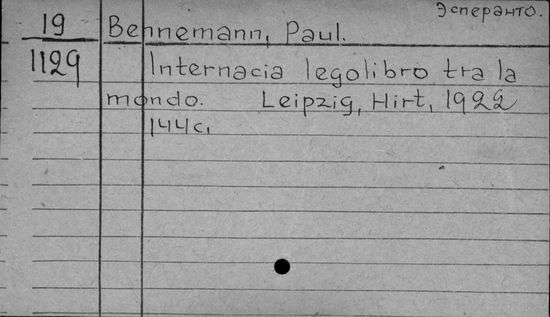 Эсперанто.
19 Bennemann, Paul.
1129 Internacia legolibro tra la
mondo. Leipzig, Hirt, 1922
144 с,